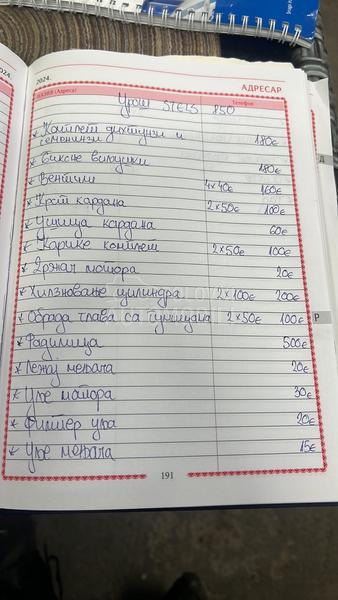 2024.
2024.
АДРЕСАР
НАЗИВ (Адреса)
Телефон
Урош STELS 850
* Комплет дихтунзи и
семеринзи 180€
* Биксне вилушки 180€
* Вентили 4x40€ 160€
* Крст кардана 2x50€ 100€
* Ушица кардана 60€
* Карике комплет 2x50€ 100€
* Држач мотора 20€
* Хилзновање цилиндра 2x100€ 200€
* Обрада глава са гумицама 2x50€ 100€
* Радилица 500€
* Лежај мењача 20€
* Уље мотора 30€
* Филтер уља 20€
* Уље мењача 15€
191
Д
Р